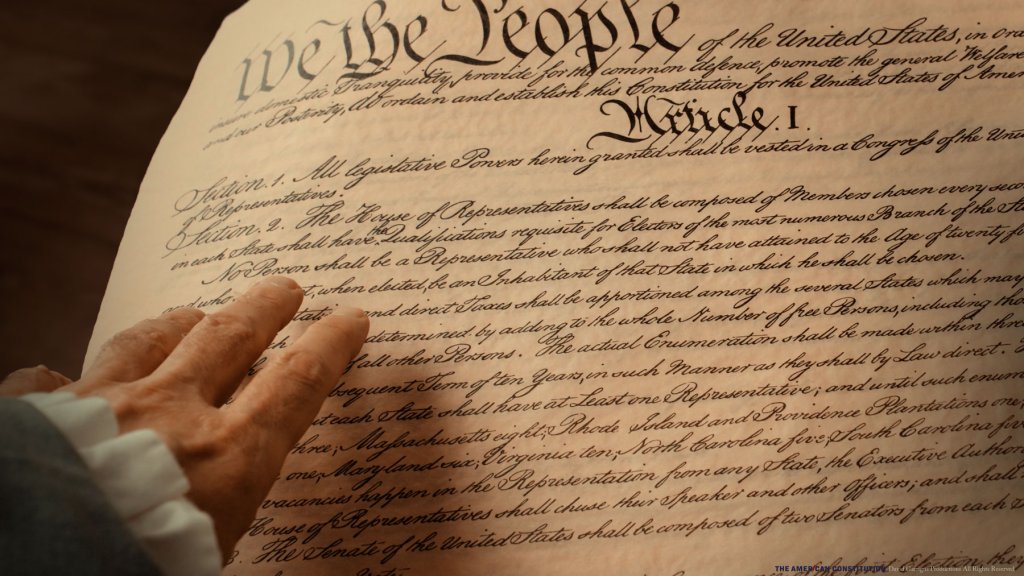 We the People of the United States, in Ord
insure domestic Tranquility, provide for the common defence, promote the general Welfare
and our Posterity, do ordain and establish this Constitution for the United States of Amer
Article. I.
Section. 1. All legislative Powers herein granted shall be vested in a Congress of the Unit
of Representatives.
Section. 2. The House of Representatives shall be composed of Members chosen every seco
in each State shall have the Qualifications requisite for Electors of the most numerous Branch of the Sta
No Person shall be a Representative who shall not have attained to the Age of twenty fi
and who t, when elected, be an Inhabitant of that State in which he shall be chosen.
and direct Taxes shall be apportioned among the several States which may
determined by adding to the whole Number of free Persons, including tho
all other Persons. The actual Enumeration shall be made within thre
bsequent Term of ten Years, in such Manner as they shall by Law direct. T
t each State shall have at Least one Representative; and until such enum
hree, Massachusetts eight, Rhode Island and Providence Plantations one,
one, Maryland six, Virginia ten, North Carolina five, South Carolina five
vacancies happen in the Representation from any State, the Executive Author
House of Representatives shall chuse their Speaker and other Officers; and shall
3. The Senate of the United States shall be composed of two Senators from each S
Election, they
THE AMERICAN CONSTITUTION Productions All Rights Reserved